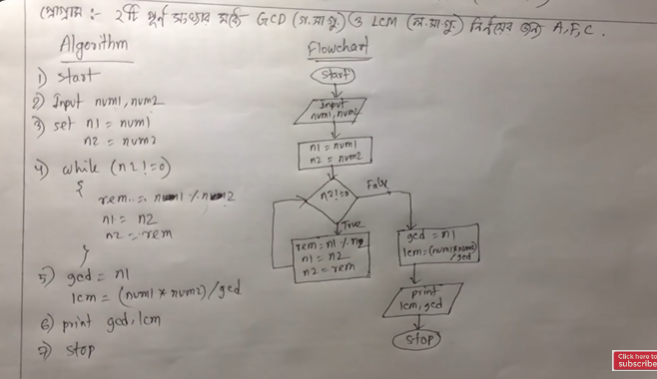 প্রোগ্রাম :- ২টি পূর্ণ সংখ্যার মধ্যে GCD (গ.সা.গু) ও LCM (ল.সা.গু) নির্ণয়ের জন্য A,F,C.
Algorithm
1) start
2) Input num1, num2
3) set n1 = num1
n2 = num2
4) while (n2!=0)
{
rem = num1 % num2
n1 = n2
n2 = rem
}
5) gcd = n1
lcm = (num1 * num2)/gcd
6) print gcd, lcm
7) stop
Flowchart
start
Input
num1, num2
n1 = num1
n2 = num2
n2!=0
False
True
rem = n1 % n2
n1 = n2
n2 = rem
gcd = n1
lcm = (num1*num2)
/gcd
print
lcm, gcd
stop
Click here to
subscribe